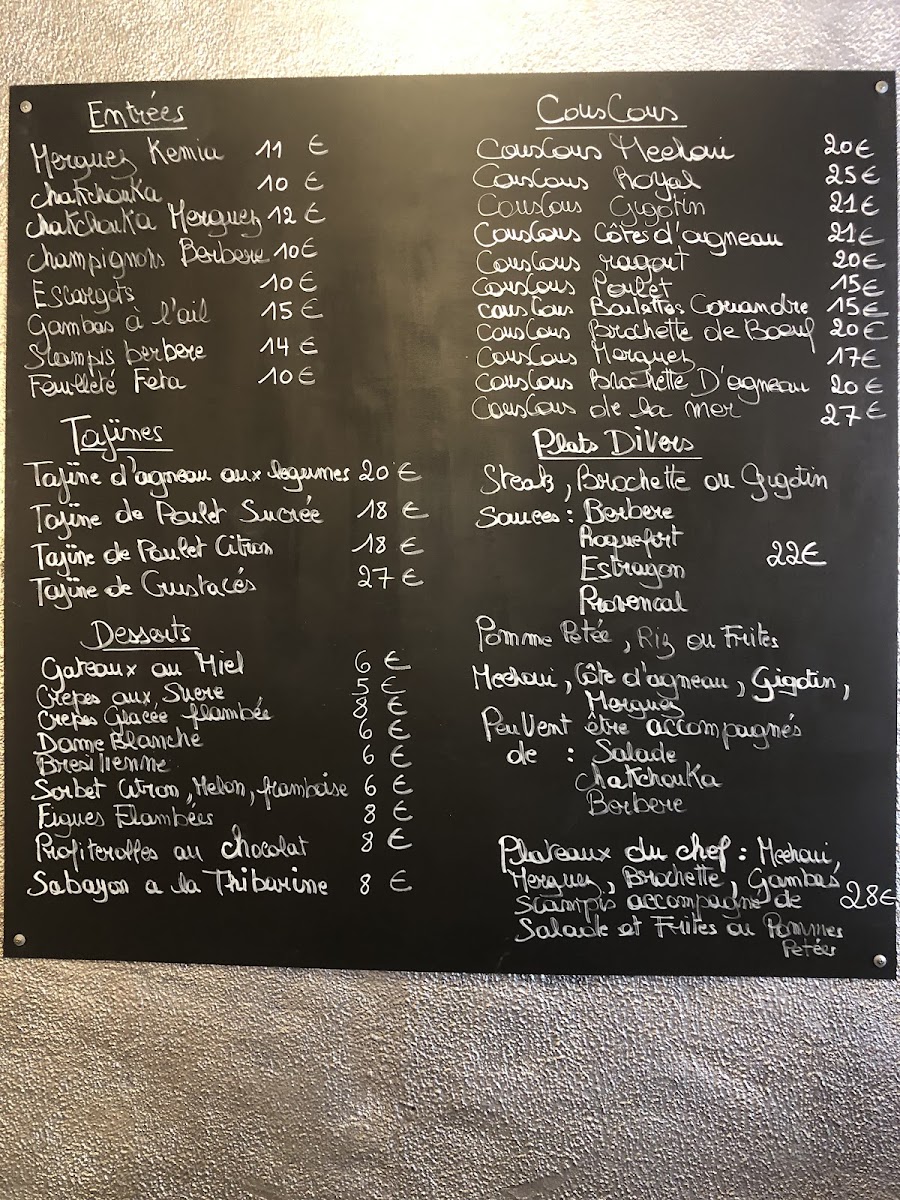 Entrées
Merguez Kemia 11 €
chakchouka 10 €
chakchouka Merguez 12 €
champignons Berbere 10€
Escargots 10 €
Gambas à l'ail 15 €
Scampis berbere 14 €
Feuilleté Feta 10 €
Tajines
Tajine d'agneau aux legumes 20 €
Tajine de Poulet Sucrée 18 €
Tajine de Poulet Citron 18 €
Tajine de Crustacés 27 €
Desserts
Gateaux au Miel 6 €
Crepes aux Sucre 5 €
Crepes Glacée flambée 8 €
Dame Blanche 6 €
Bresilienne 6 €
Sorbet Citron, Melon, framboise 6 €
Figues Flambées 8 €
Profiterolles au chocolat 8 €
Sabayon a la Thibarine 8 €
CousCous
CousCous Mechoui 20€
CousCous Royal 25€
CousCous Gigotin 21€
CousCous Côtes d'agneau 21€
CousCous ragout 20€
CousCous Poulet 15€
CousCous Boulettes Coriandre 15€
CousCous Brochette de Boeuf 20€
CousCous Merguez 17€
CousCous Brochette D'agneau 20€
CousCous de la mer 27€
Plats Divers
Steak, Brochette ou Gigotin
Sauces : Berbere
Roquefort
Estragon 22€
Provencal
Pomme Petée, Riz ou Frites
Mechoui, Côte d'agneau, Gigotin,
Merguez
Peuvent être accompagnés
de : Salade
Chakchouka
Berbere
Plateaux du chef : Mechoui,
Merguez, Brochette, Gambas
Scampis accompagne de 28€
Salade et Frites ou Pommes
Petées